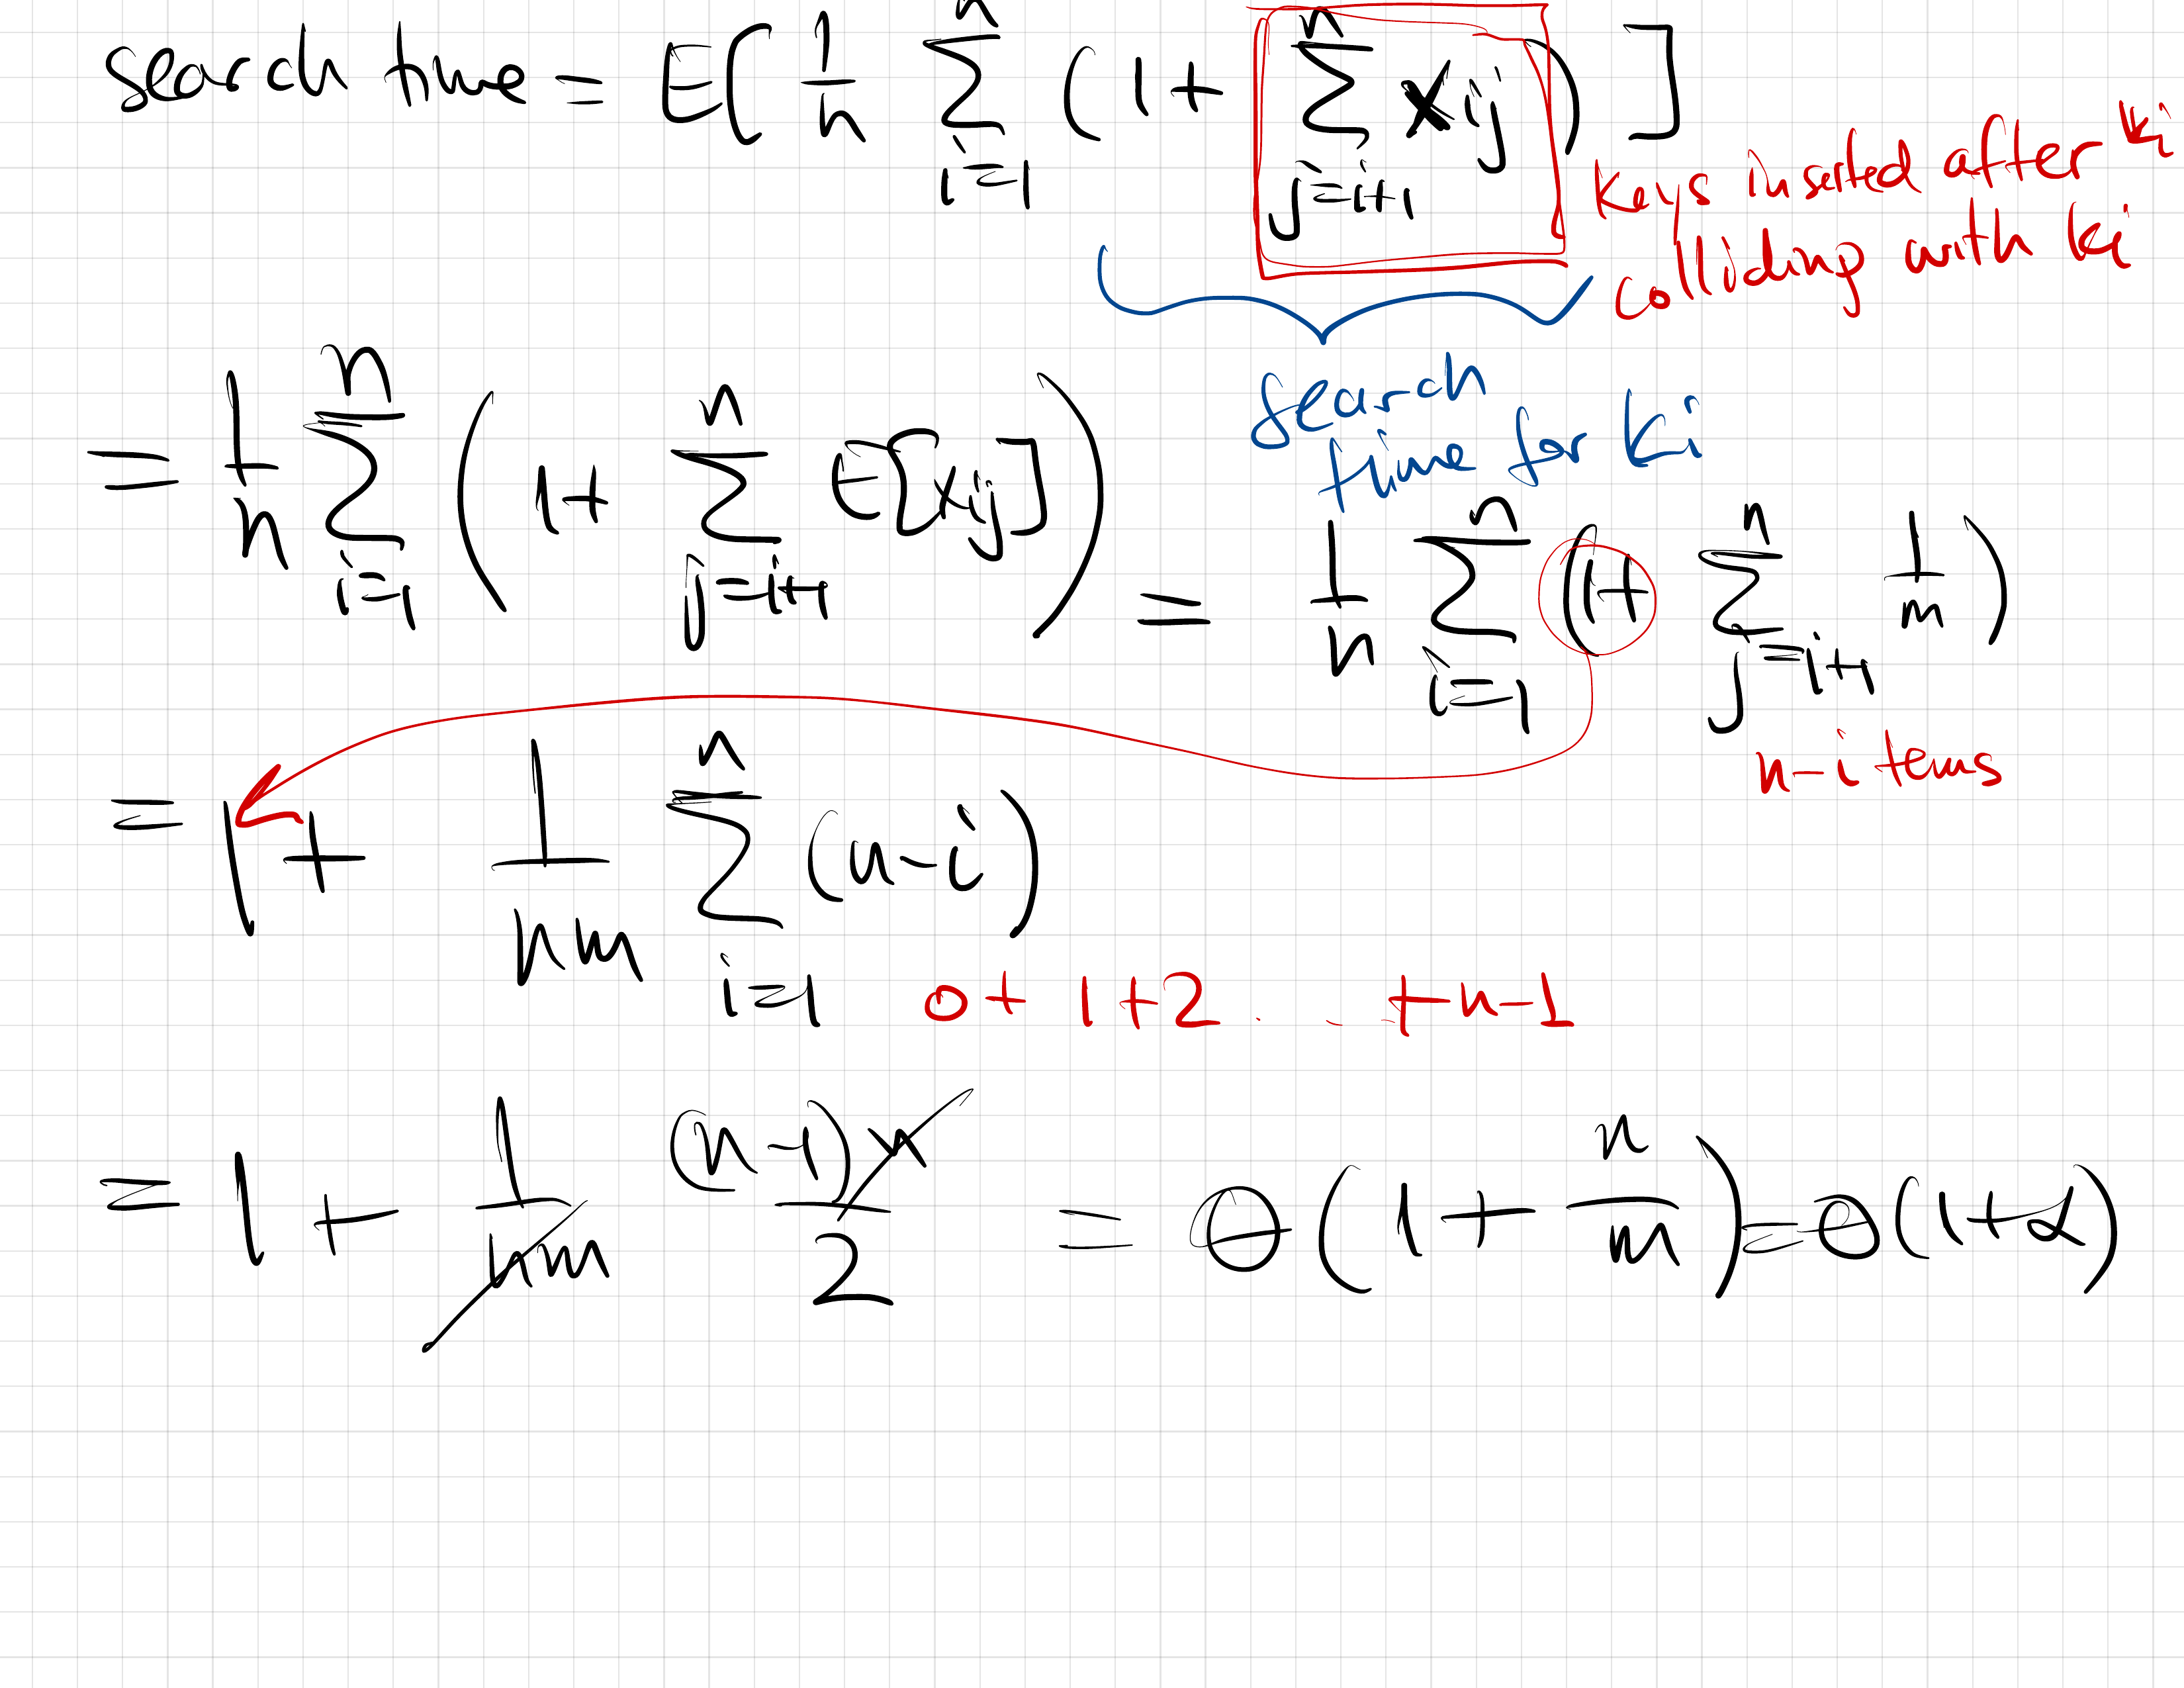 search time = E[ 1/n ∑_{i=1}^{n} ( 1+ ∑_{j=i+1}^{n} Xij ) ]
keys inserted after ki
colliding with ki
search
time for ki
= 1/n ∑_{i=1}^{n} ( 1+ ∑_{j=i+1}^{n} E[Xij] ) = 1/n ∑_{i=1}^{n} (1+ ∑_{j=i+1}^{n} 1/m )
n-i terms
= 1 + 1/nm ∑_{i=1}^{n} (n-i)
0+1+2 . . . +n-1
= 1 + 1/nm (n-1)n/2 = Θ(1+ n/m) = Θ(1+α)